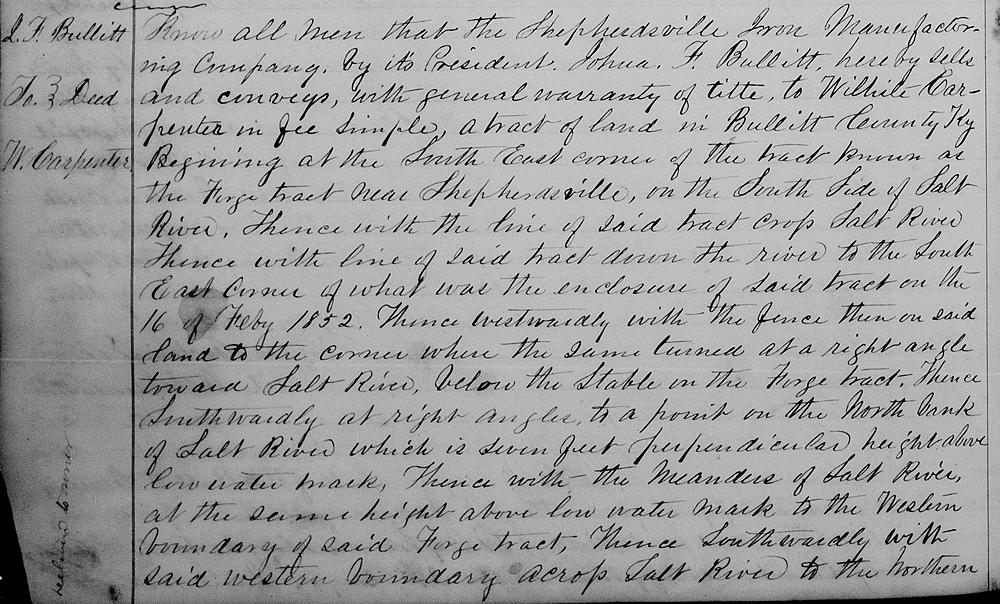 J. F. Bullitt
To. } Deed
W. Carpenter,
Know all men that the Shepherdsville Iron Manufactor-
ing Company, by it's President. Johua. F. Bullitt, hereby sells
and conveys, with general warranty of title, to Wilhite Car-
penter in fee simple, a tract of land in Bullitt County Ky
Begining at the South East corner of the tract known as
the Forge tract near Shepherdsville, on the South Side of Salt
River, Thence with the line of said tract cross Salt River
Thence with line of said tract down the river to the South
East Corner of what was the enclosure of said tract on the
16 of Feby 1852. Thence westwardly with the fence then on said
land to the corner where the same turned at a right angle
toward Salt River, below the Stable on the Forge tract. Thence
Southwardly at right angles, to a point on the North bank
of Salt River which is seven feet perpendicular height above
low water mark, Thence with the Meanders of Salt River,
at the same height above low water mark to the Western
boundary of said Forge tract, Thence Southwardly with
said western boundary across Salt River to the Northern
to owner